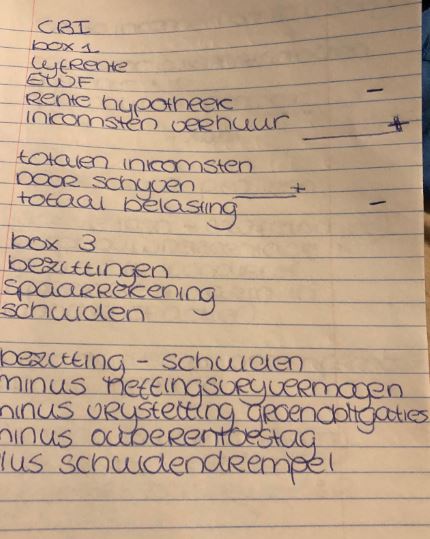 CBI
box 1
Lyfrente
EWF
Rente hypotheek -
inkomsten verhuur +
totalen inkomsten
Door schyven +
totaal belasting -
box 3
bezittingen
spaarrekening
schulden
bezitting - schulden
minus heffingsvryvermogen
minus vrystelling groenobligaties
minus ouderentoeslag
lus schuldendrempel